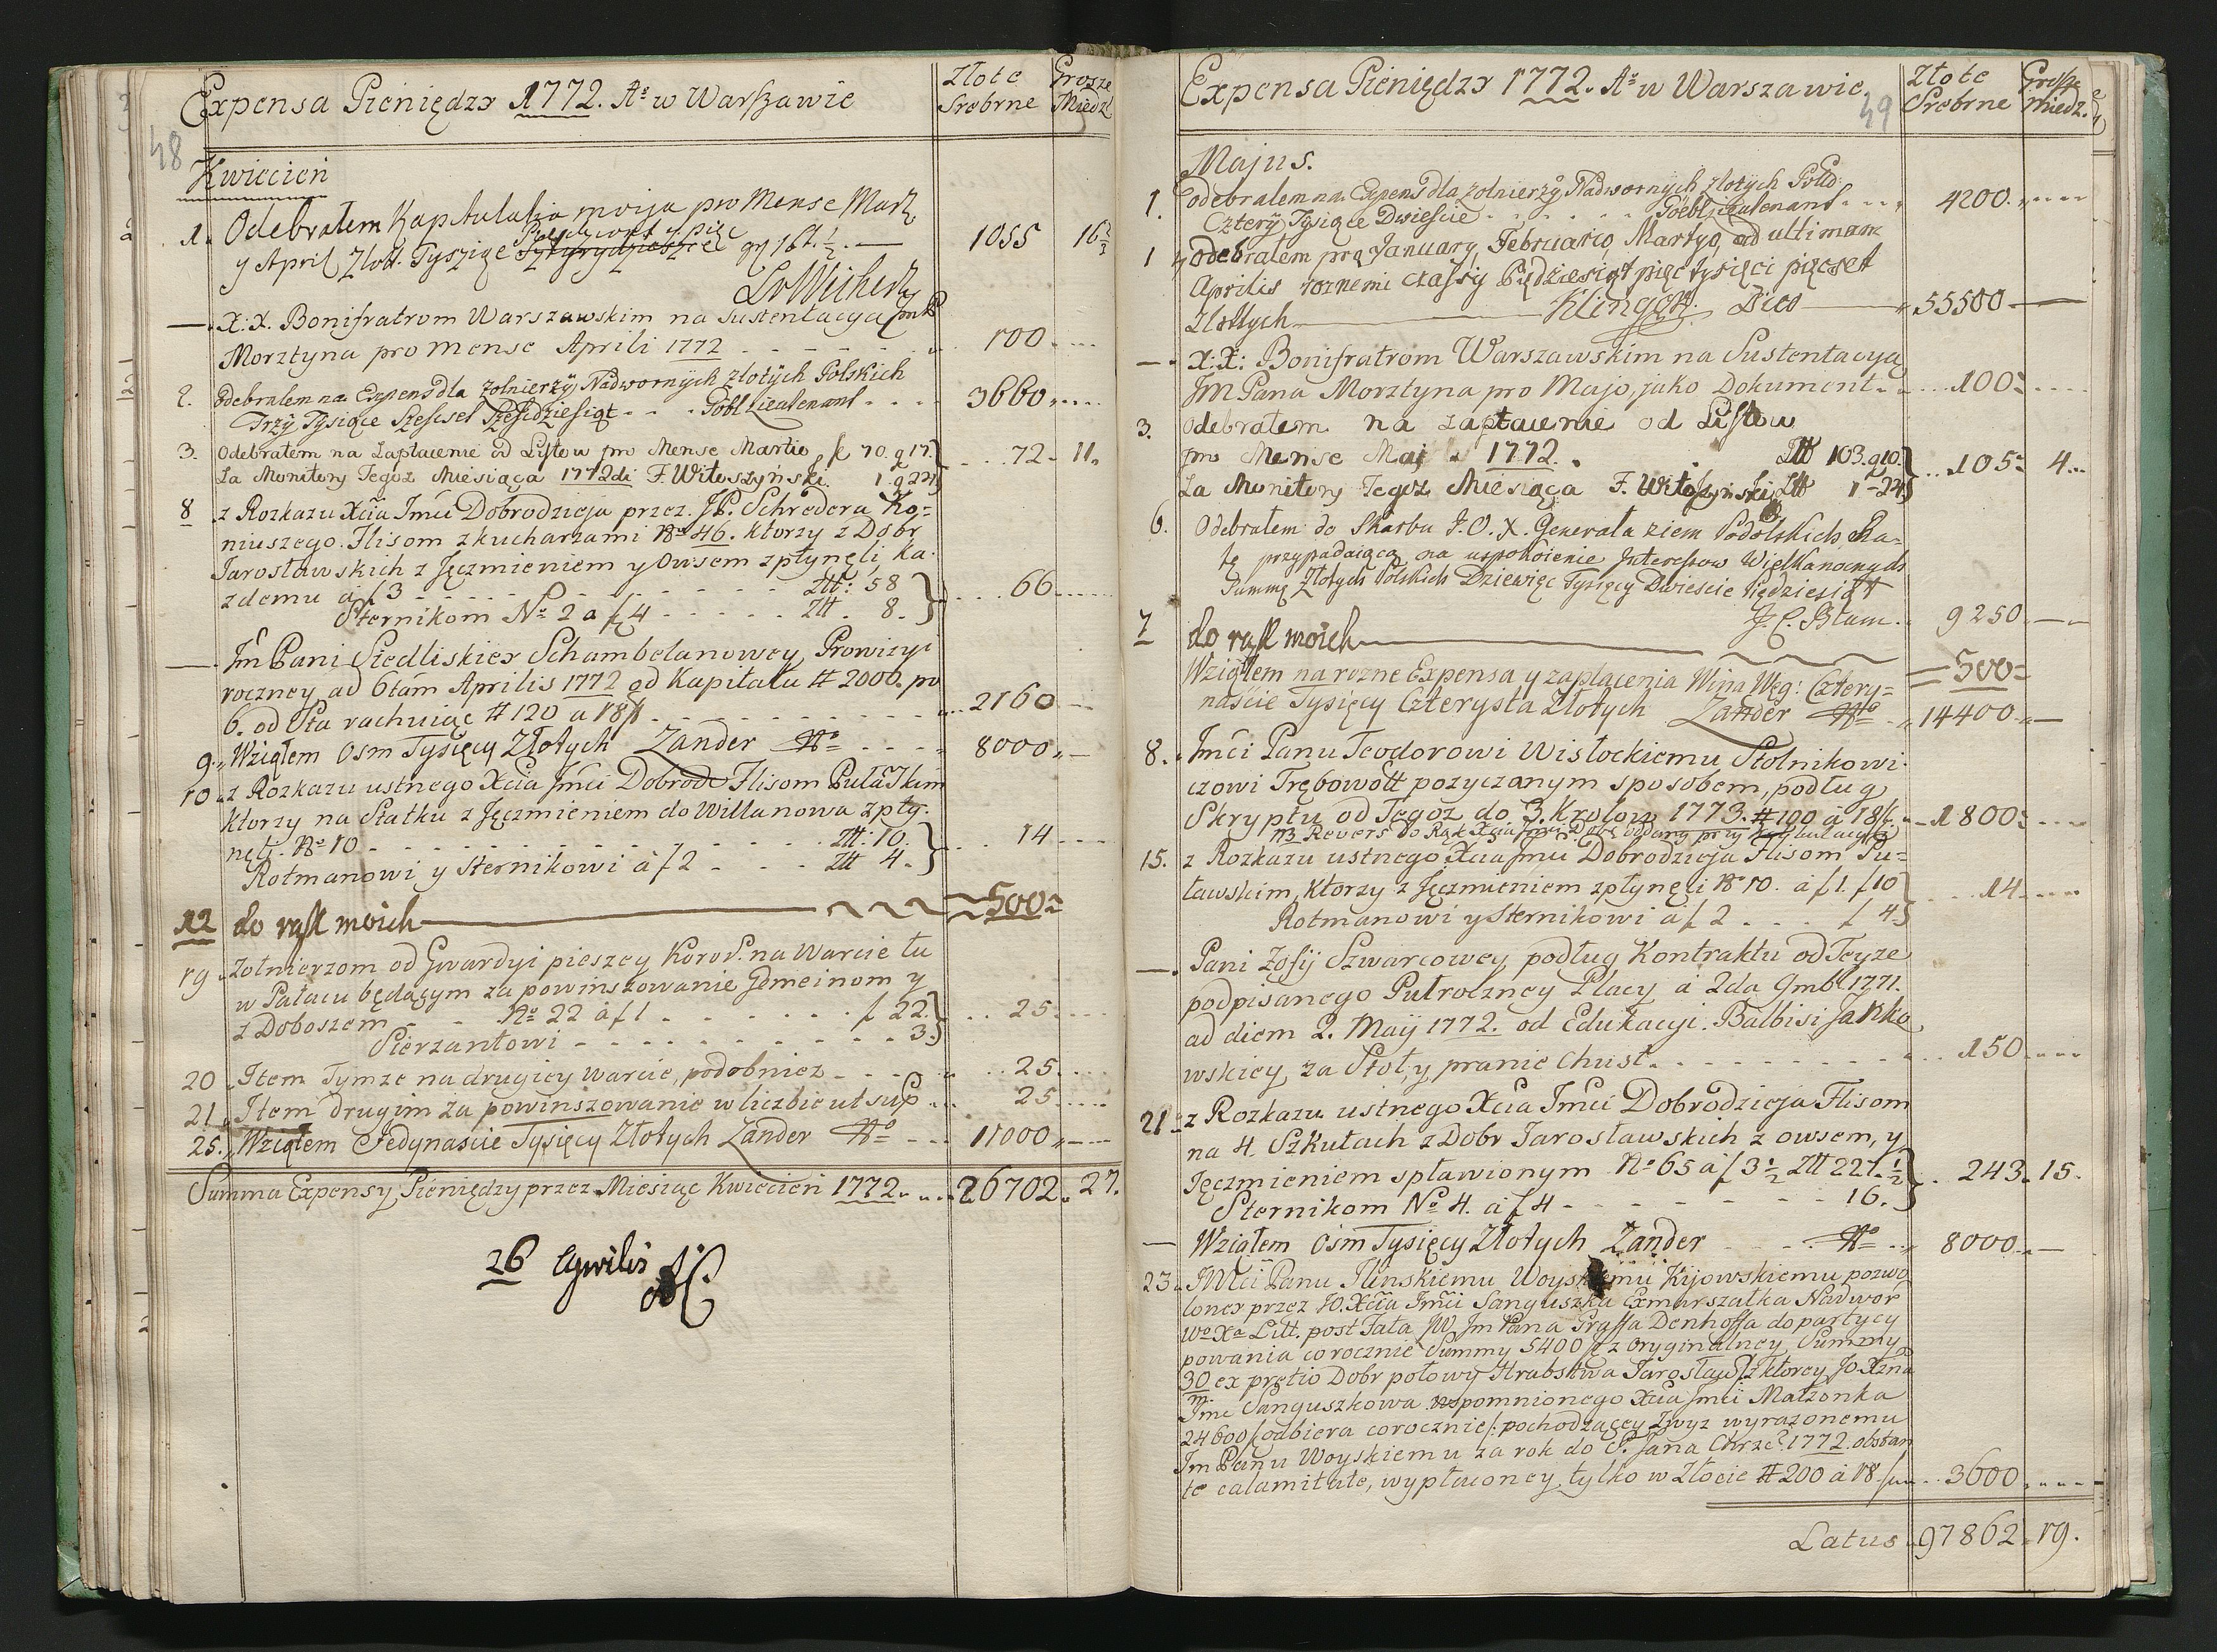 48
Expensa Pieniędzy 1772. Aº w Warszawie
Złote Grosze
Srebrne Miedź
Kwiecień
1. Odebrałem Kaptulalia moija pro Mense Marty
y April Złott. Tysziąc gr 16t. ½ 1055 16½
X: X. Bonifratrom Warszawskim na Sustentacyą
Morztyna pro Mense Aprili 1772 100
2. Odebralem na Expens dla Zolnierzÿ Nadwornÿch Złotÿch Polskich
Trzÿ Tysiące Szescset Szescdziesiąt Göbl Lieutenant 3660
3. Odebrałem na Zapłacenie od Listow pro Mense Martio f 70. g 17.
Za Monitory Tegoz Miesiąca 1772 di F. Witoszyński. 1. g 24 72 11.
8 z Rozkazu Xcia Jmći Dobrodzieja przez JP. Schredera Ko=
niuszego. Flisom z kucharzami Nº 46. ktorzy z Dobr
Jarosławskich z Jęczmieniem y Owsem zpłynęli, ka-
zdemu a f 3 Ztt: 58
Sternikom Nº 2 a f 4 Ztt. 8. 66
Jm Pani Siedliskiey Schambelanowey Prowizyi
roczney ad 6tam Aprilis 1772 od Kapitału # 2000. po
6. od Sta rachuiąc # 120 a 18 f 2160
9. Wziąłem Osm Tysięcy Złotych Zander 8000
10. z Rozkazu ustnego Xcia Jmći Dobrode Flisom Puławskim
ktorzy na Statku z Jęczmieniem do Willanowa zpły-
nęli. Nº 10 Ztt: 10.
Rotmanowi y Sternikowi à f 2 Ztt 4. 14
12 do rąk moich 500
19. Zołnierzom od Gwardyi pieszey Koron. na Warcie tu
w Pałacu będącym za powinszowanie Gemeinom y
z Doboszem Nº 22 à f 1 f 22.
Sierzantowi 3. 25
20 Item Tymze na drugiey warcie, podobniez 25
21. Item drugim za powinszowanie w liczbie ut sup 25
25. Wziąłem Jedynascie Tysięcy Złotych Zander 11000
Summa Expensy Pieniędzy przez Miesiąc Kwiecień 1772. 26702. 27.
26 Aprilis
49
Expensa Pieniędzy 1772. Aº w Warszawie
Złote Grosze
Srebrne Miedz.
Majus.
1. Odebralem na Expens dla Zolnierzÿ Nadwornÿch Zlotÿch Polld:
Czterÿ Tysiące Dwiescie Göebl Lieutenant 4200.
1 Odebrałem pro January, Februario, Martyo, ad ultimam
Aprilis roznemi czassy Pędziesiąt pięc tysięci pięcset
Zlottych Klingoff. Dico 55500
X: X: Bonifratrom Warszawskim na Sustentacyą
JM Pana Morztyna pro Majo, jako Dokument 100
3. Odebrałem na zapłacenie od Listow
pro Mense Maj 1772. Ztt 103. g 10.
Za Monitory Tegoz Miesiąca F. Witoszyński Ztt 1 - 24 105 4
6. Odebrałem do Skarbu J. O. X. Generała Ziem Podolskich Ra=
tę przypadaiącą na uspokoienie Interessow Wielkanocnych
Summę Złotych Polskich Dziewięc Tysięcy Dwiescie Piędziesiąt
J. C. Blum. 9250
7 do rąk moich 500
Wziąłem na rozne Expensa y zapłacenia Wina Węg: Cztery=
nascie Tysięcy Czterysta Złotych Zander 14400
8. Jmći Panu Teodorowi Wisłockiemu Stolnikowi-
czowi Trębowott pozyczanym sposobem, podług
Skryptu od Tegoz do 3. Krolow 1773. # 100 à 18 f 1800
NB Revers do Rąk Xcia Jmci Dobr oddany przy
15. z Rozkazu ustnego Xcia Jmci Dobrodzieja Flisom Pu=
ławskim, ktorzy z Jęczmieniem zpłynęli Nº 10. à f 1. f 10
Rotmanowi y Sternikowi à f 2 f 4. 14
Pani Zofij Szwarcowey podług Kontraktu od Teyze
podpisanego Pułroczney Płacy à 2da 9mb 1771.
ad diem 2. Maÿ 1772. od Edukacyi. Balbisi Janko
wskiey, za Stoł, y pranie Chust 150
21. z Rozkazu ustnego Xcia Jmći Dobrodzieja Flisom
na 4. Szkutach z Dobr Jarosławskich z owsem, y
Jęczmieniem spławionym Nº 65 a f 3½ Ztt 227.½
Sternikom Nº 4. à f 4 16. 243. 15.
Wziąłem Osm Tysięcy Złotych Zander 8000
23. JMći Panu Ilinskiemu Woyskiemu Kijowskiemu pozwo
loney przez JO. Xcia Jmći Sanguszka Exmarszałka Nadwor
wº Xª Litt. post Fata JW Jm Pana Graffa Denhoffa do partycy
powania corocznie Summy 5400 f z Oryginalney Summy
30 ex pretio Dobr połowy Hrabstwa Jarosław z ktorey JO. Xzna
m
Jmć Sanguszkowa wspomnionego Xcia Jmći Małzonka
24600 f odbiera corocznie /: pochodzącey zwyz wyrazonemu
Jm Panu Woyskiemu za rok do S. Jana Chrzc. 1772. obstan
te calamitate, wypłaconey tylko w Złocie # 200 à 18 f 3600
Latus 97862. 19.